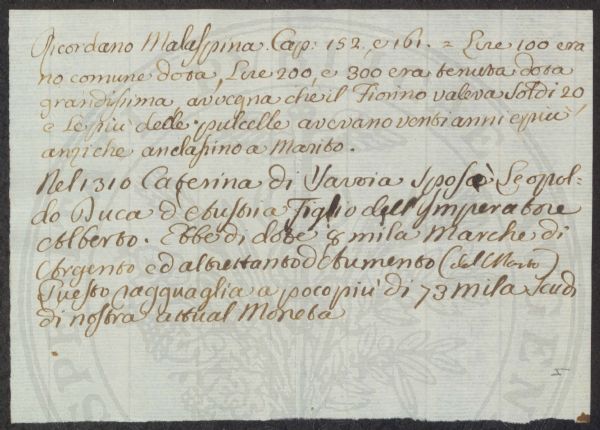 Ricordano Malaspina. Cap: 152. e 161. = Lire 100 era
no comune dota, Lire 200, e 300 era tenuta dota
grandissima, avvegna che il Fiorino valeva Soldi 20
e le più delle pulcelle avevano venti anni e più
anziche andassino a Marito.
Nel 1310 Caterina di Savoia sposò Leopol-
do Duca d'Austria Figlio dell'Ymperatore
Alberto. Ebbe di dote 8 mila Marche di
Argento ed altrettanto d'Aumento (del Morto)
Questo ragguaglia a poco più di 73 mila Scudi
di nostra attual Moneta